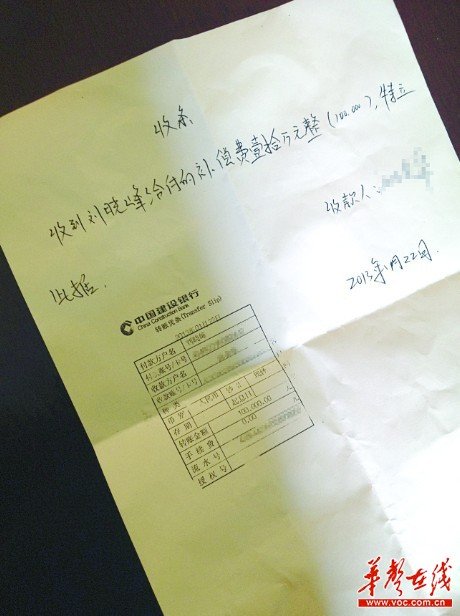 收条
收到刘晓峰给付的补偿费壹拾万元整(100.000),特立
此据.
收款人:
2013年1月22日.
中国建设银行
China Construction Bank
转账凭条(Transfer Slip)
付款方户名
付款账号/卡号
收款方户名
收款账号/卡号
种类
币别 人民币
存期 起息日
转账金额 100,000.00
手续费 0.00
流水号
授权号
華聲在线
www.voc.com.cn